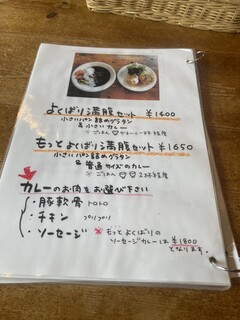 よくばり満腹セット ¥1400
小さいパン詰めグラタン
& 小さいカレー
もっとよくばり満腹セット ¥1650
小さいパン詰めグラタン
& 普通サイズのカレー
カレーのお肉をお選び下さい
・豚軟骨 トロトロ
・チキン
・ソーセージ ※もっとよくばりの
ソーセージカレーは ¥1800
となります。